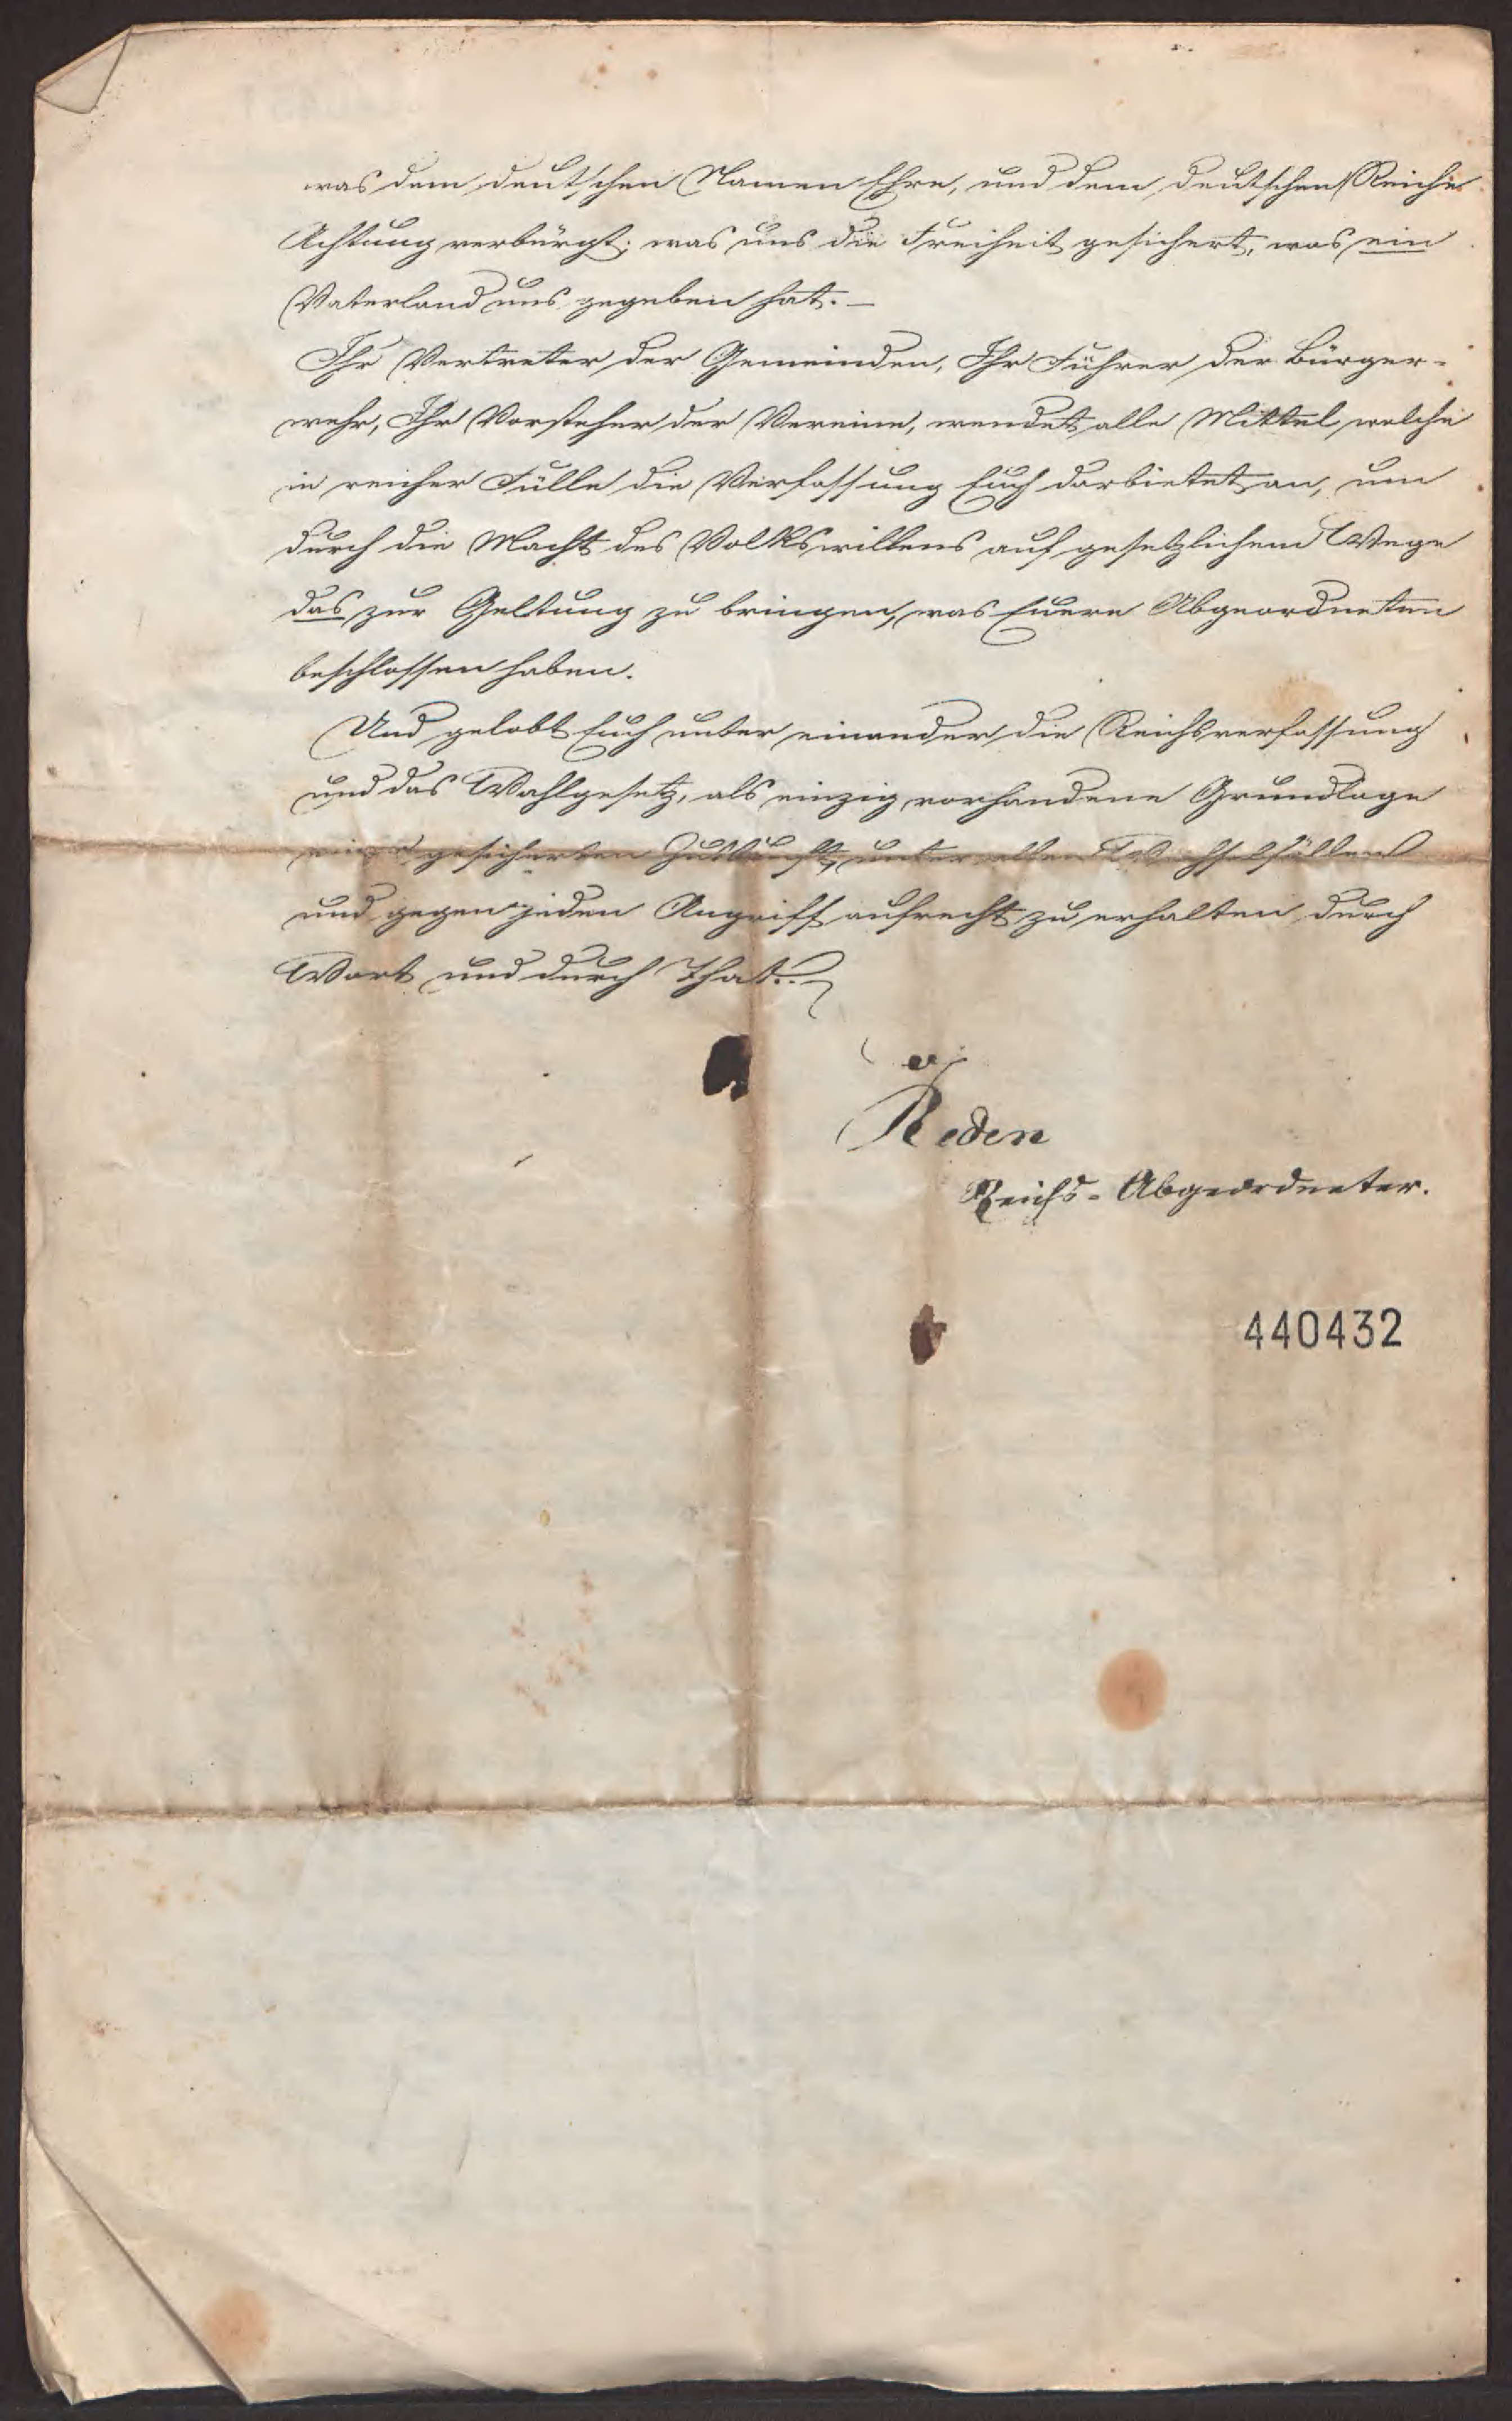 was dem deutschen Namen Ehre, und dem deutschen Reiche
Achtung verbürgt; was uns die Freiheit gesichert, was ein
Vaterland uns gegeben hat. —
Ihr Vertreter der Gemeinden, Ihr Führer der Bürger-
wehr, Ihr Vorsteher der Vereine, wendet alle Mittel, welche
in reicher Fülle die Verfassung Euch darbietet, an, um
durch die Macht des Volkswillens auf gesetzlichem Wege
das zur Geltung zu bringen, was Euere Abgeordneten
beschlossen haben.
Und gelobt Euch unter einander, die Reichsverfassung
und das Wahlgesetz, als einzig vorhandene Grundlage
einer gesicherten Zukunft, unter allen Wechselfällen
und gegen jeden Angriff aufrecht zu erhalten, durch
Wort und durch That.
v
Reden
Reichs-Abgeordneter.
440432